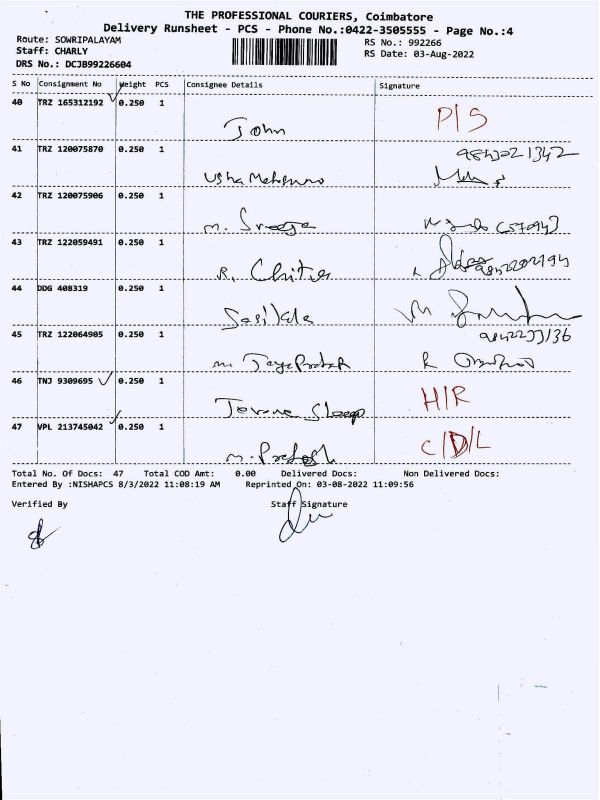 THE PROFESSIONAL COURIERS, Coimbatore
Delivery Runsheet - PCS - Phone No.:0422-3505555 - Page No.:4
Route: SOWRIPALAYAM RS No.: 992266
Staff: CHARLY RS Date: 03-Aug-2022
DRS No.: DCJB99226604
S No Consignment No Weight PCS Consignee Details Signature
40 TRZ 165312192 0.250 1
John P/S
41 TRZ 120075870 0.250 1
Usha
42 TRZ 120075906 0.250 1
M. Sreeja
43 TRZ 122059491 0.250 1
R. Chitra
44 DDG 408319 0.250 1
Sasikala
45 TRZ 122064905 0.250 1 9842233136
M. R
46 TNJ 9309695 0.250 1
H/R
47 VPL 213745042 0.250 1
M. C/D/L
Total No. Of Docs: 47 Total COD Amt: 0.00 Delivered Docs: Non Delivered Docs:
Entered By :NISHAPCS 8/3/2022 11:08:19 AM Reprinted On: 03-08-2022 11:09:56
Verified By Staff Signature